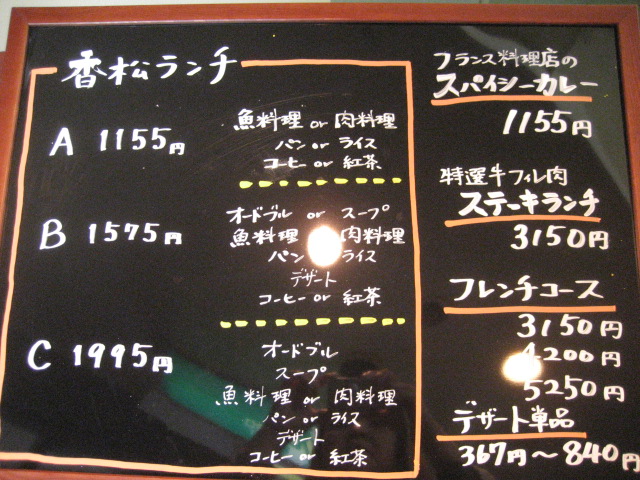 香松ランチ
A 1155円
魚料理 or 肉料理
パン or ライス
コーヒ or 紅茶
B 1575円
オードブル or スープ
魚料理 肉料理
パン ライス
デザート
コーヒー or 紅茶
C 1995円
オードブル
スープ
魚料理 or 肉料理
パン or ライス
デザート
コーヒー or 紅茶
フランス料理店の
スパイシーカレー
1155円
特選牛フィル肉
ステーキランチ
3150円
フレンチコース
3150円
4200円
5250円
デザート単品
367円〜840円